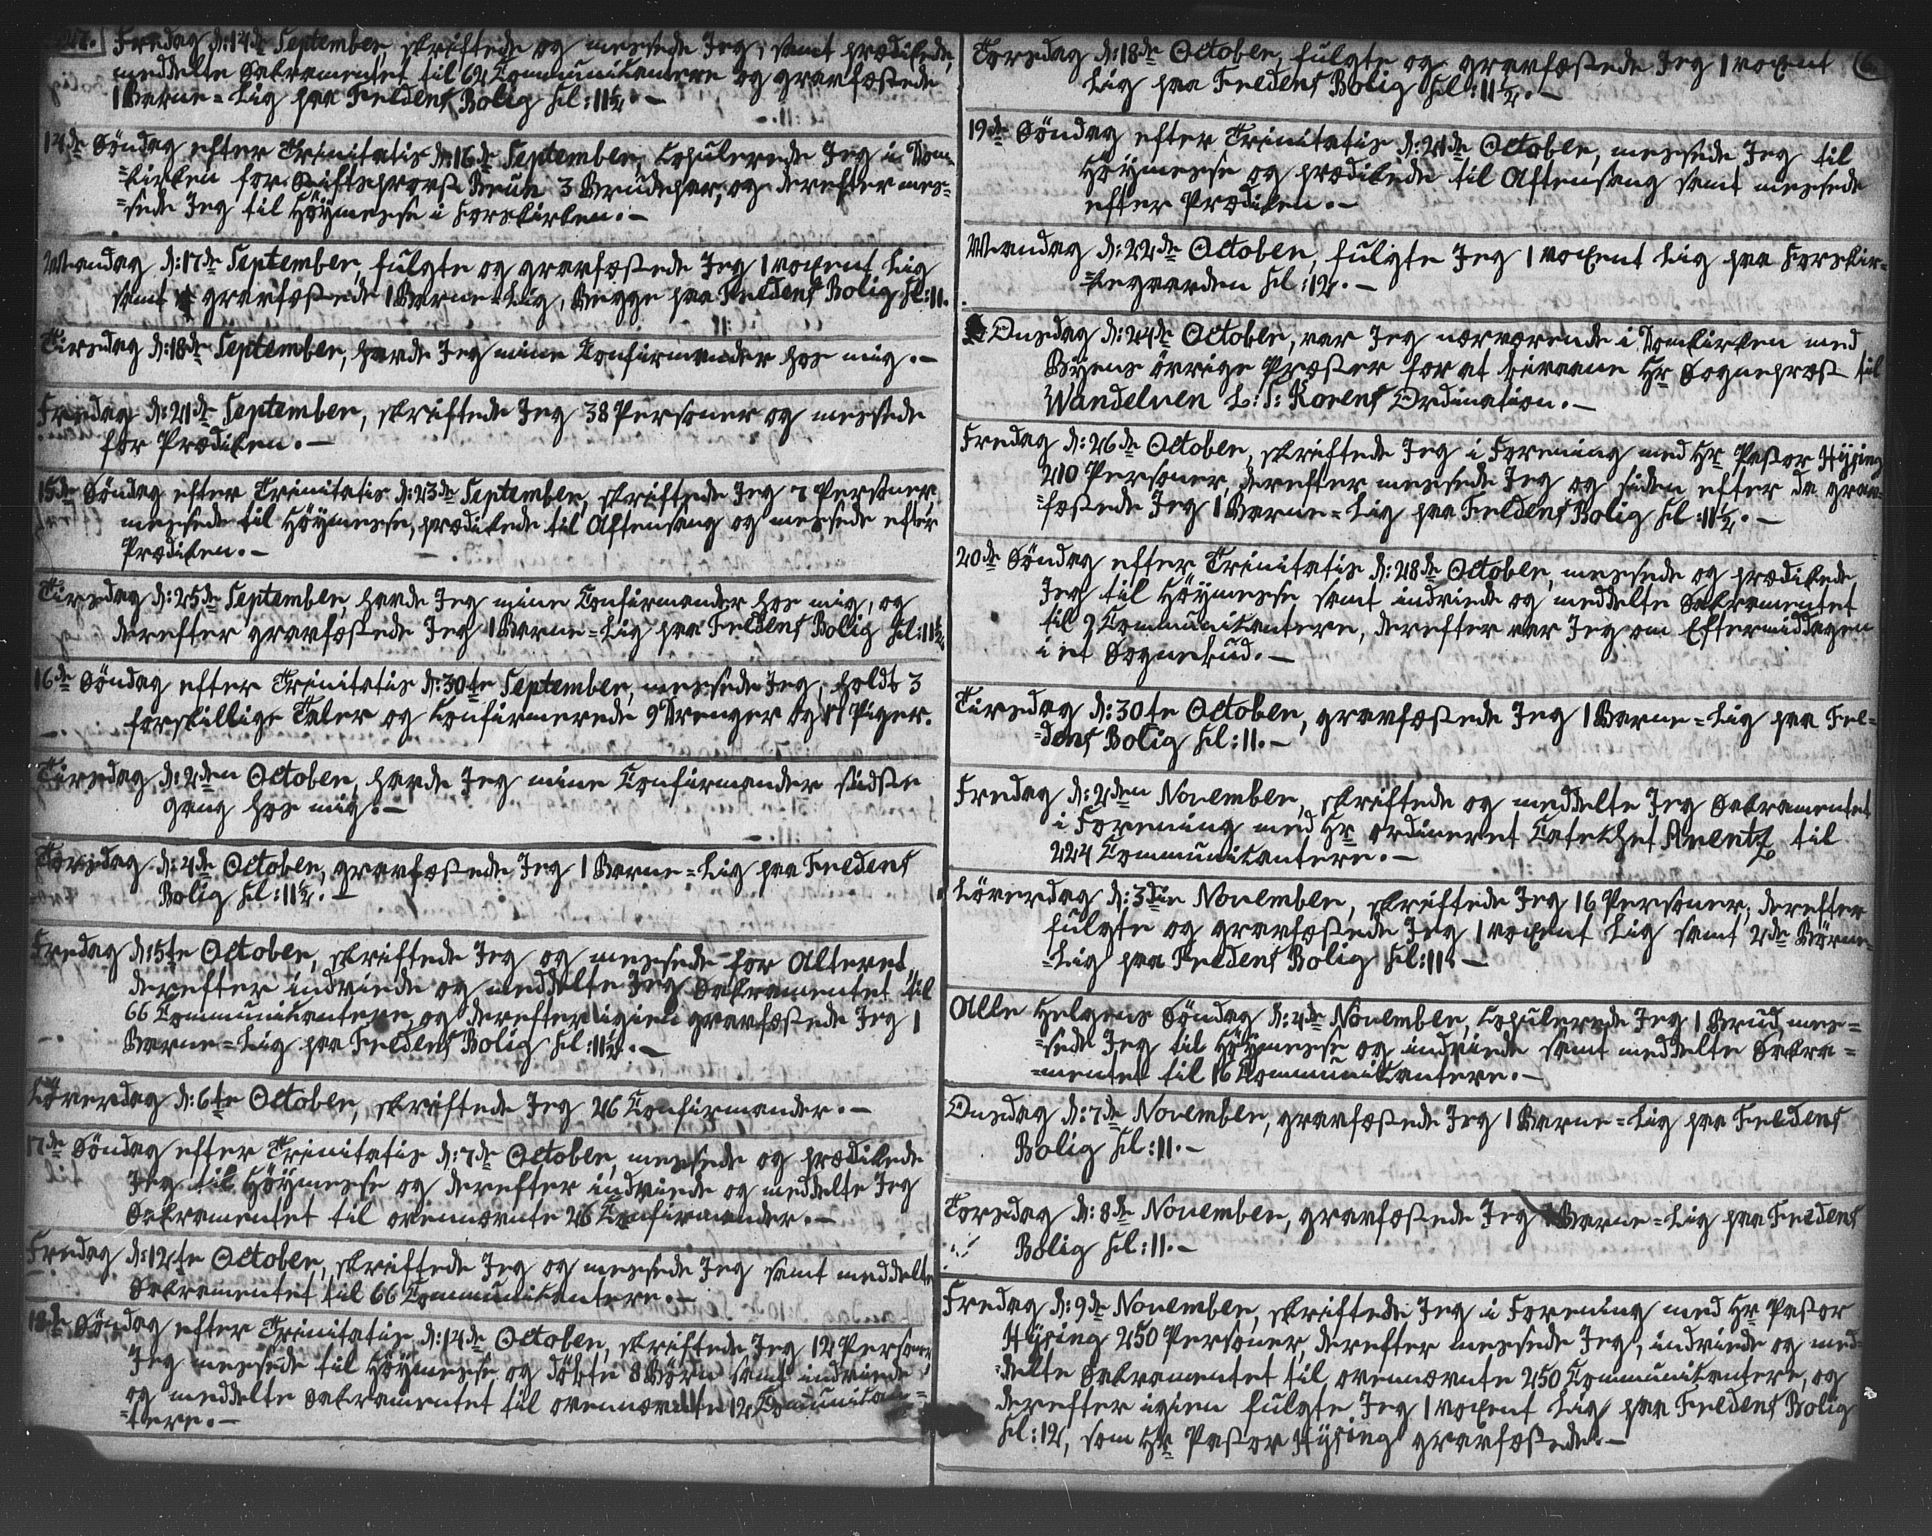 Fredag d: 14de September, skriftede og messede Jeg, samt prædikede,
meddelte Sakramentet til 62 Communicantere og gravfæstede
1 Barne=Lig paa Fredens Bolig Kl: 11½.-
14de Söndag efter Trinitatis d: 16de September, Copulerede Jeg i Dom=
=kirken for Stiftsprovst 3 Brudepar, og derefter mes=
=sede Jeg til Höymesse i Korskirken.-
Mandag d: 17de September, fulgte og gravfæstede Jeg 1 voxent Lig
samt gravfæstede 1 Barne=Lig, Begge paa Fredens Bolig Kl: 11.
Tirsdag d: 18de September, havde Jeg mine Confirmander hos mig.-
Fredag d: 21de September, skriftede Jeg 38 Personer og messede
for Prædiken.-
15de Söndag efter Trinitatis d: 23de September, skriftede Jeg 7 Personer
messede til Höymesse, prædikede til Aftensang og messede efter
Prædiken.-
Tirsdag d: 25de September, havde Jeg mine Confirmander hos mig, og
derefter gravfæstede Jeg 1 Barne=Lig paa Fredens Bolig Kl: 11½
16de Söndag efter Trinitatis d: 30te September, messede Jeg, holdt 3
forskillige Taler og Confirmerede 9 Drenger og Piger.
Tirsdag d: 2den October, havde Jeg mine Confirmander sidste
gang hos mig.-
Torsdag d: 4de October, gravfæstede Jeg 1 Barne=Lig paa Fredens
Bolig Kl: 11½.-
Fredag d: 5te October, skriftede Jeg og messede for Alteret
derefter indviede og meddelte Jeg Sakramentet til
66 Communicantere og derefter igien gravfæstede Jeg 1
Barne=Lig paa Fredens Bolig Kl: 11½.-
Löverdag d: 6te October, skriftede Jeg 26 Confirmander.-
17de Söndag efter Trinitatis d: 7de October, messede og prædikede
Jeg til Höymesse og derefter indviede og meddelte Jeg
Sakramentet til ovennævnte 26 Confirmander.-
Fredag d: 12te October, skriftede Jeg og messede Jeg samt meddelte
Sakramentet til 66 Communicantere.-
18de Söndag efter Trinitatis d: 14de October, skriftede Jeg 12 Personer
Jeg messede til Höymesse og döbte 8 Börn samt indviede
og meddelte Sakramentet til ovennævnte 12 Communican=
=tere.-
Torsdag d: 18de October, fulgte og gravfæstede Jeg 1 voxent
Lig paa Fredens Bolig Kl: 11½.-
19de Söndag efter Trinitatis d: 21de October, messede Jeg til
Höymesse og prædikede til Aftensang samt messede
efter Prædiken.-
Mandag d: 22de October, fulgte Jeg 1 voxent Lig paa Korskir=
=kegaarden Kl: 12.-
Onsdag d: 24de October, var Jeg nærværende i Domkirken med
Byens övrige Præster for at bivaane Hr Sognepræst til
Wandelven L: S: Korens Ordination.-
Fredag d: 26de October, skriftede Jeg i Forening med Hr Pastor Hysing
210 Personer, derefter messede Jeg og siden efter da grav=
=fæstede Jeg 1 Barne=Lig paa Fredens Bolig Kl: 11½.-
20de Söndag efter Trinitatis d: 28de October, messede og prædikede
Jeg til Höymesse samt indviede og meddelte Sakramentet
til 9 Communicantere, derefter var Jeg om Eftermiddagen
i et Sognebud.-
Tirsdag d: 30te October, gravfæstede Jeg 1 Barne=Lig paa Fre=
=dens Bolig Kl: 11.-
Fredag d: 2den November, skriftede og meddelte Jeg Sakramentet
i Forening med Hr ordineret Catechet Arentz til
224 Communicantere.-
Löverdag d: 3die November, skriftede Jeg 16 Personer, derefter
fulgte og gravfæstede Jeg 1 voxent Lig samt 2de Börne=
=Lig paa Fredens Bolig Kl: 11.-
Alle Helgens Söndag d: 4de November, Copulerede Jeg 1 Brud, mes=
=sede Jeg til Höymesse og indviede samt meddelte Sakra=
=mentet til 16 Communicantere.-
Onsdag d: 7de November, gravfæstede Jeg 1 Barne=Lig paa Fredens
Bolig Kl: 11.-
Torsdag d: 8de November, gravfæstede Jeg 1 Barne=Lig paa Fredens
Bolig Kl: 11.-
Fredag d: 9de November, skriftede Jeg i Forening med Hr Pastor
Hysing 250 Personer, derefter messede Jeg, indviede og med=
=delte Sakramentet til ovennævnte 250 Communicantere, og
derefter igien fulgte Jeg 1 voxent Lig paa Fredens Bolig
Kl: 12, som Hr Pastor Hysing gravfæstede.-